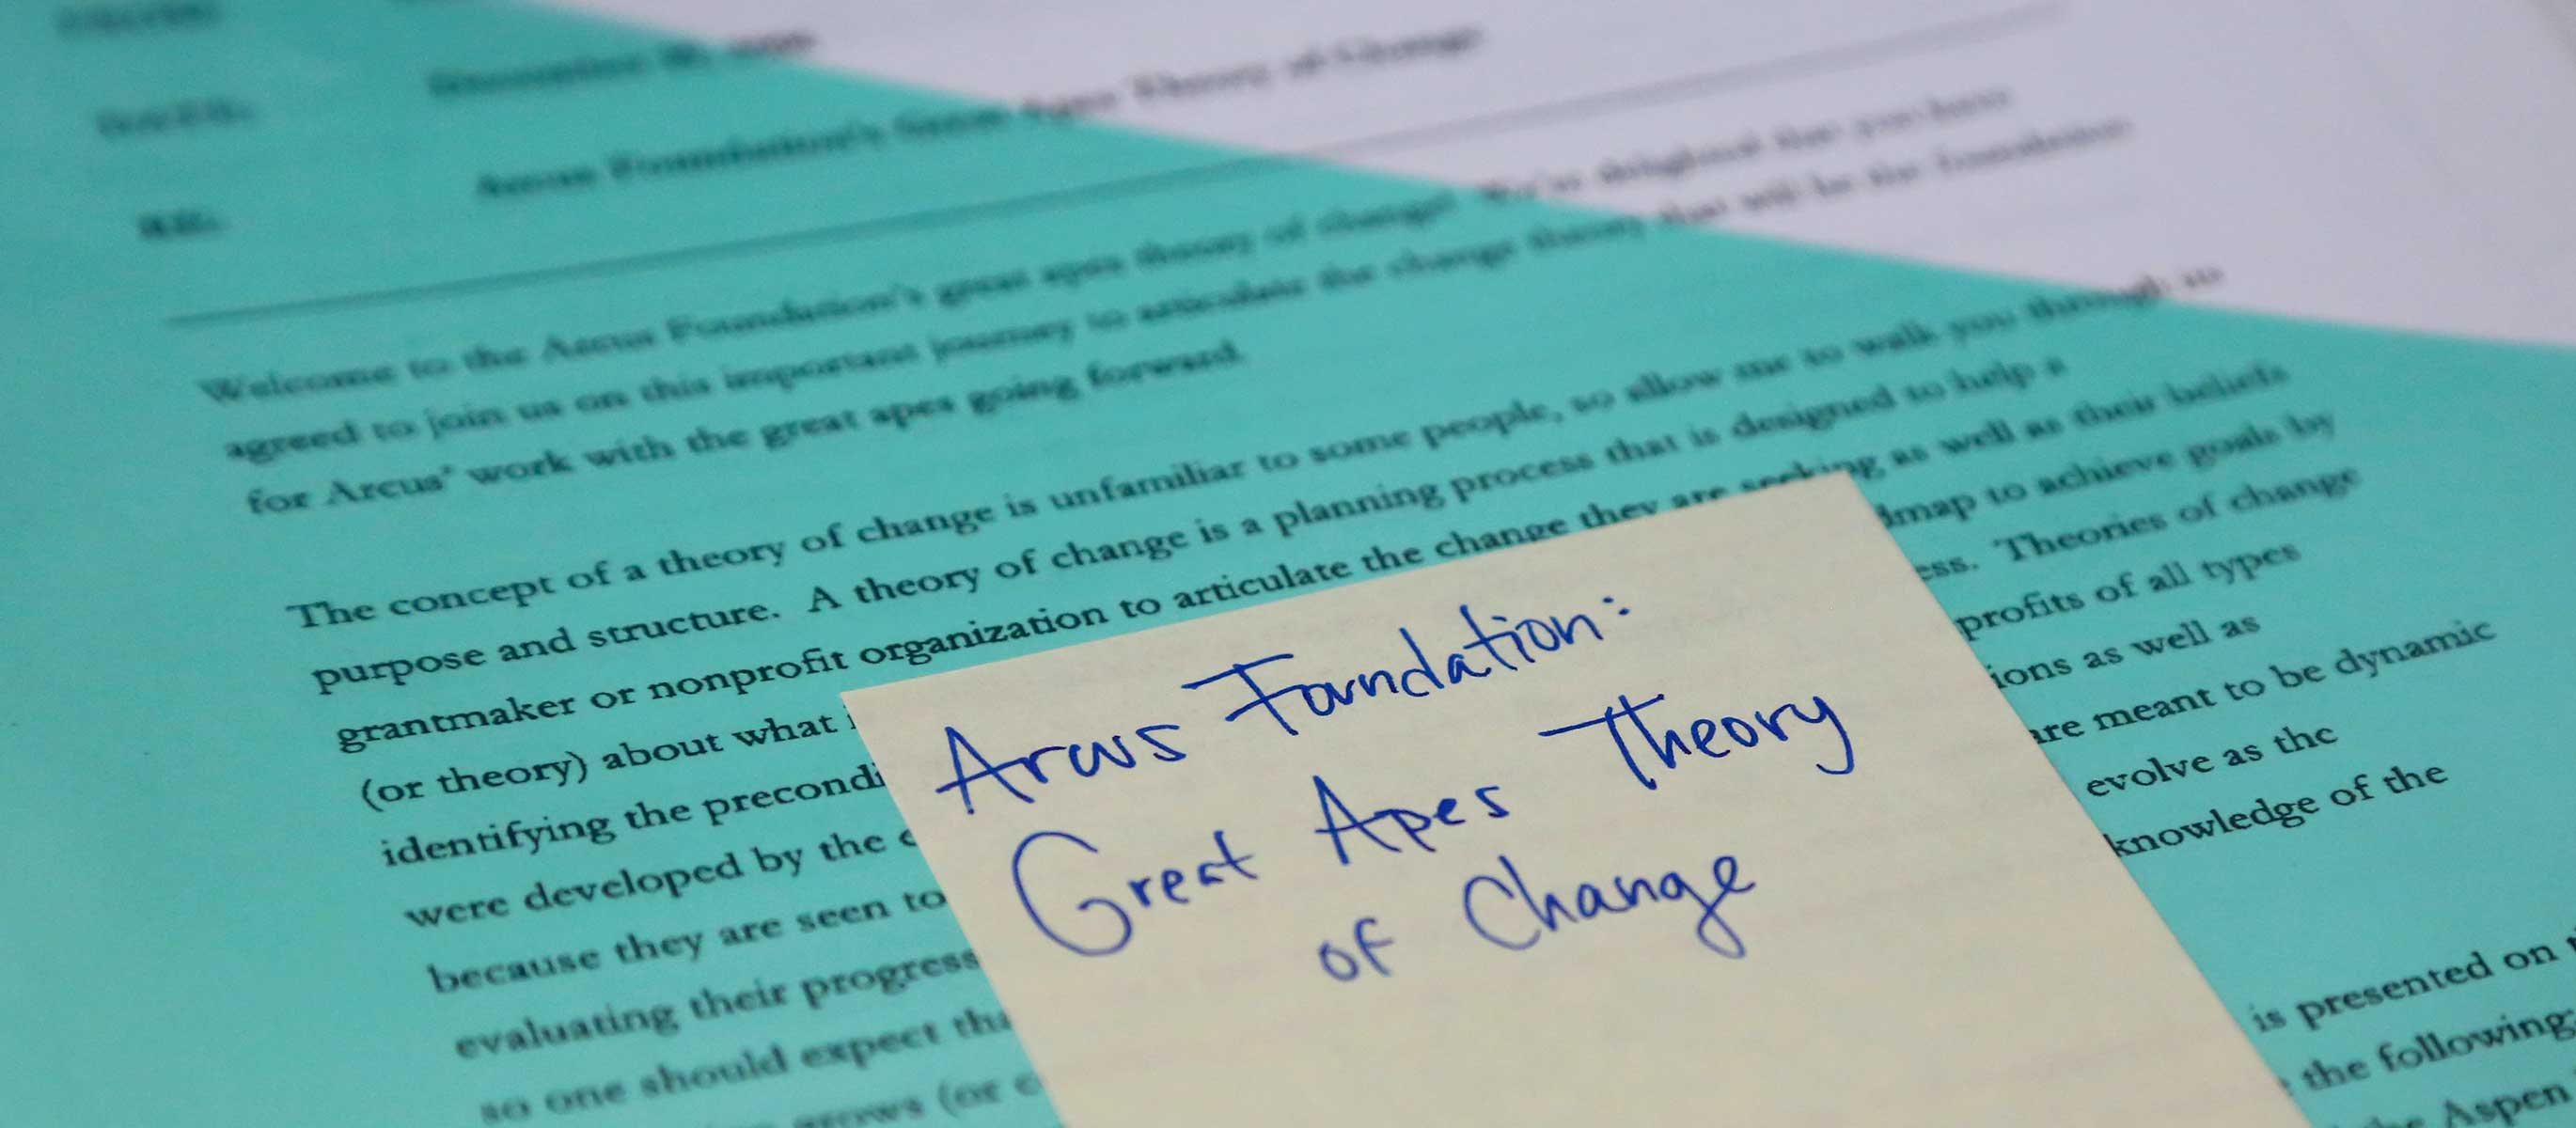 RE:
Arcus Foundation's Great Apes Theory of Change
Welcome to the Arcus Foundation's great apes theory of change! We're delighted that you have
agreed to join us on this important journey to articulate the change theory that will be the foundation
for Arcus' work with the great apes going forward.
The concept of a theory of change is unfamiliar to some people, so allow me to walk you through its
purpose and structure. A theory of change is a planning process that is designed to help a
grantmaker or nonprofit organization to articulate the change they are seeking as well as their beliefs
(or theory) about what dmap to achieve goals by
identifying the precondi ess. Theories of change
were developed by the profits of all types
because they are seen to ions as well as
evaluating their progress are meant to be dynamic
so one should expect tha evolve as the
grows (or knowledge of the
is presented on
the following:
the Aspen
Arcus Foundation:
Great Apes Theory
of Change